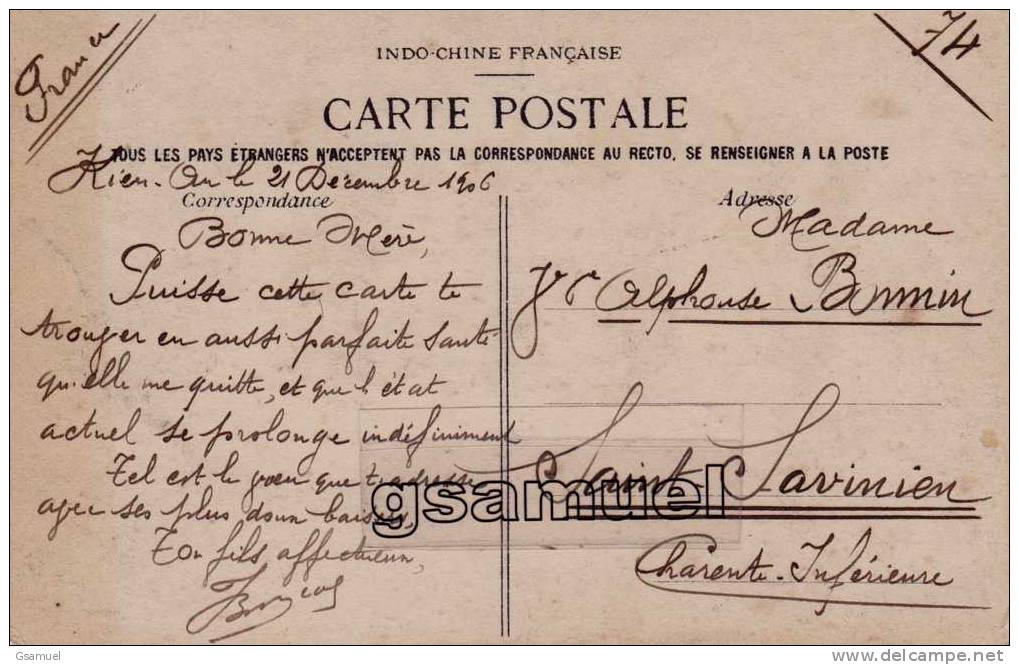 France
74
INDO-CHINE FRANÇAISE
CARTE POSTALE
TOUS LES PAYS ETRANGERS N'ACCEPTENT PAS LA CORRESPONDANCE AU RECTO, SE RENSEIGNER A LA POSTE
Kien-An le 21 Décembre 1906
Correspondance
Bonne Mère,
Puisse cette carte te
trouver en aussi parfaite santé
qu'elle me quitte, et que l'état
actuel se prolonge indéfiniment
Tel est le vœu que t'adresse
avec ses plus doux baisers,
Ton fils affectueux,
Adresse
Madame
Vve Alphonse Bonnin
Saint-Savinien
Charente-Inférieure
gsamuel
Gsamuel
http://www.delcampe.net